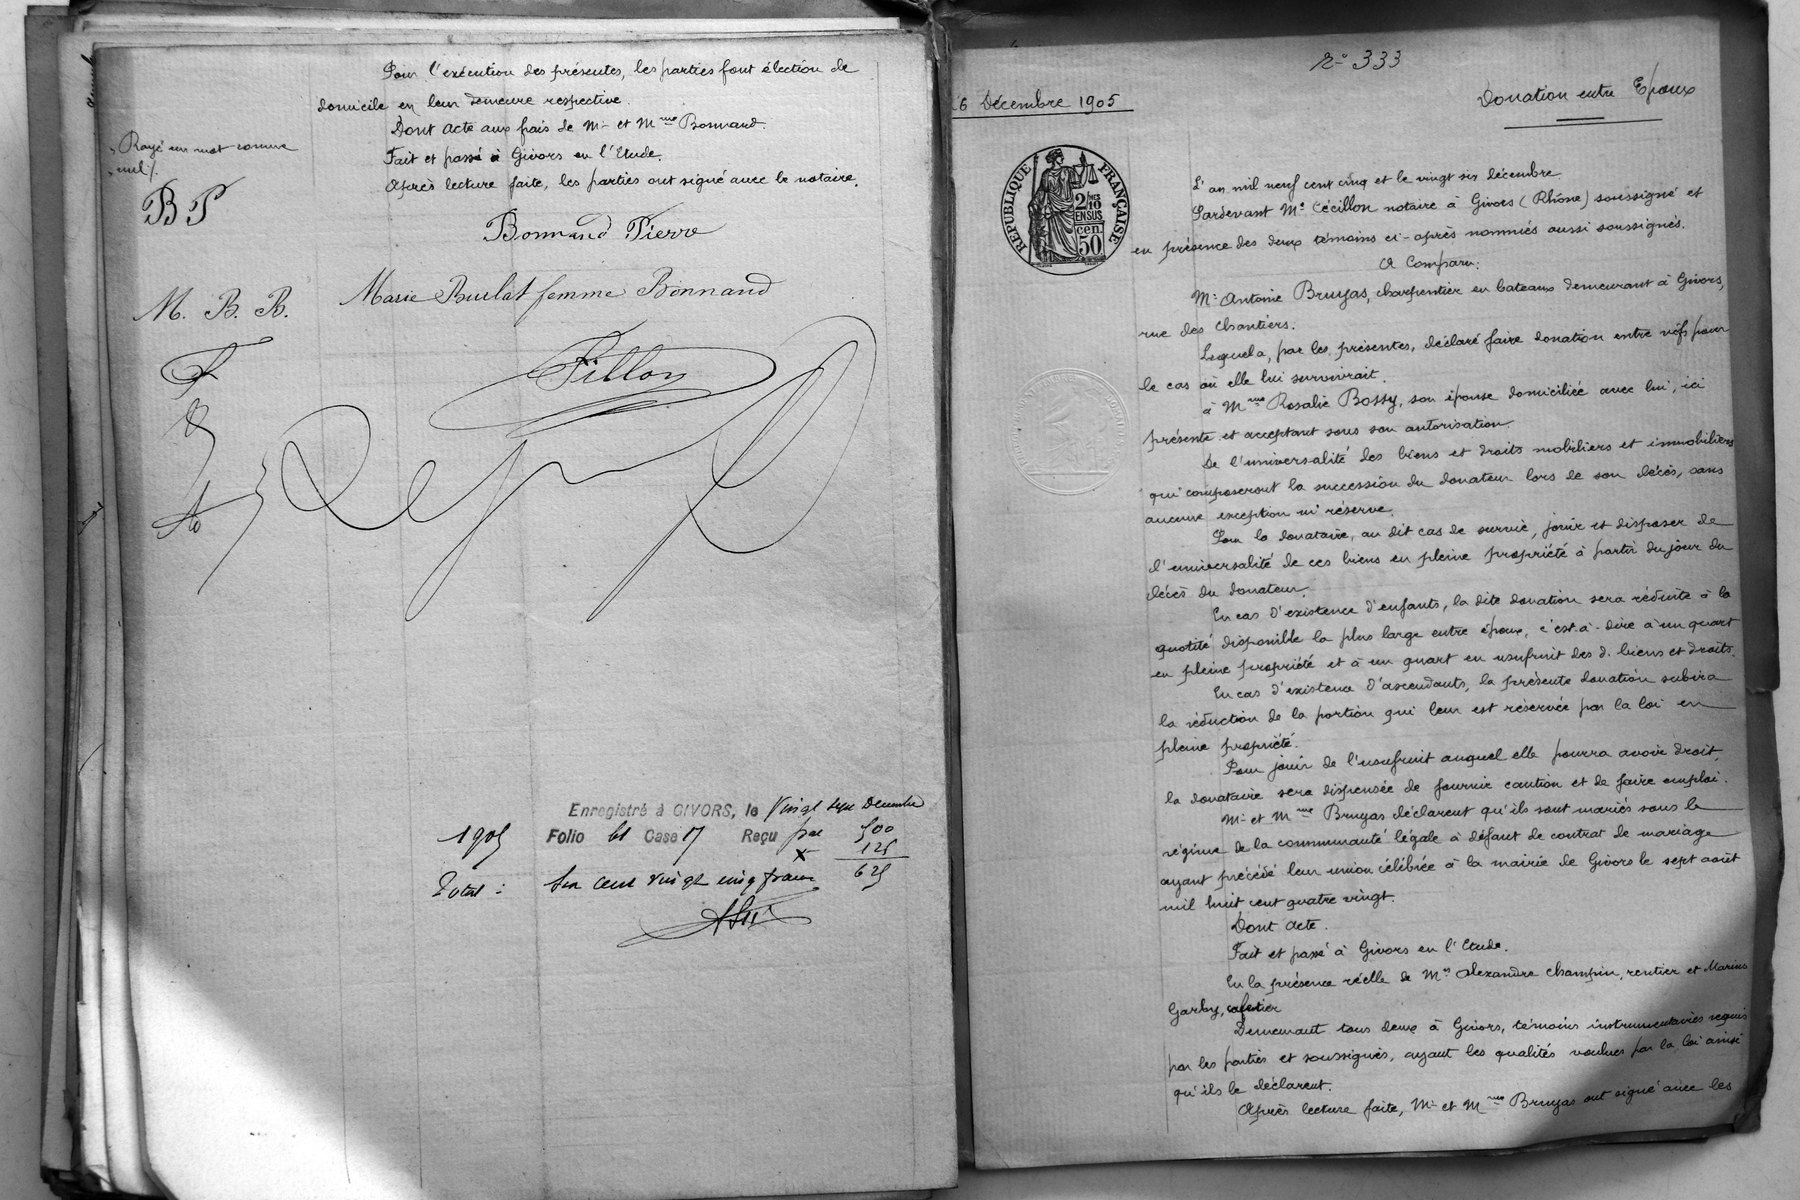 Pour l'exécution des présentes, les parties font élection de
domicile en leur demeure respective.
Dont acte aux frais de Mr et Mme Bonnand.
Fait et passé à Givors en l'Etude.
Après lecture faite, les parties ont signé avec le notaire.
Rayé un mot comme
nul /.
BP
Bonnand Pierre
M. B. B.
Marie Burlat femme Bonnand
Fillon
Enregistré à GIVORS, le Vingt sept Décembre
1905 Folio 61 Case 17 Reçu 500
125
Total : Six cent vingt cinq francs 625
N° 333
26 Décembre 1905
Donation entre Epoux
REPUBLIQUE FRANÇAISE
2/10mes
EN SUS
50 cen.
L'an mil neuf cent cinq et le vingt six décembre
Pardevant Me Cécillon notaire à Givors (Rhône) soussigné et
en présence des deux témoins ci-après nommés aussi soussignés.
A Comparu:
Mr Antoine Bruyas, charpentier en bateaux demeurant à Givors,
rue des Chantiers.
Lequel a, par les présentes, déclaré faire donation entre vifs pour
le cas où elle lui survivrait.
à Mme Rosalie Bossy, son épouse domiciliée avec lui, ici
présente et acceptant sous son autorisation.
De l'universalité des biens et droits mobiliers et immobiliers
qui composeront la succession du donateur lors de son décès, sans
aucune exception ni réserve.
Pour la donataire, au dit cas de survie, jouir et disposer de
l'universalité de ces biens en pleine propriété à partir du jour du
décès du donateur.
En cas d'existence d'enfants, la dite donation sera réduite à la
quotité disponible la plus large entre époux, c'est-à-dire à un quart
en pleine propriété et à un quart en usufruit des d. biens et droits.
En cas d'existence d'ascendants, la présente donation subira
la réduction de la portion qui leur est réservée par la loi en
pleine propriété.
Pour jouir de l'usufruit auquel elle pourra avoir droit,
la donataire sera dispensée de fournir caution et de faire emploi.
Mr et Mme Bruyas déclarent qu'ils sont mariés sous le
régime de la communauté légale à défaut de contrat de mariage
ayant précédé leur union célébrée à la mairie de Givors le sept août
mil huit cent quatre vingt.
Dont acte.
Fait et passé à Givors en l'Etude.
En la présence réelle de Mrs Alexandre Champin, rentier et Marius
Garby, cafetier
Demeurant tous deux à Givors, témoins instrumentaires requis
par les parties et soussignés, ayant les qualités voulues par la loi ainsi
qu'ils le déclarent.
Après lecture faite, Mr et Mme Bruyas ont signé avec les